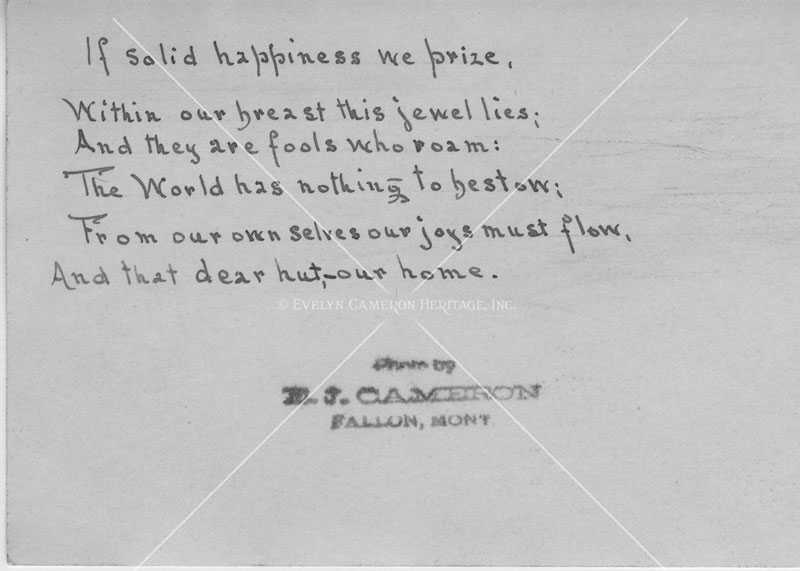 If solid happiness we prize,
Within our breast this jewel lies;
And they are fools who roam:
The World has nothing to bestow;
From our own selves our joys must flow,
And that dear hut,–our home.
© Evelyn Cameron Heritage, Inc.
Photo by
E. J. CAMERON
FALLON, MONT.